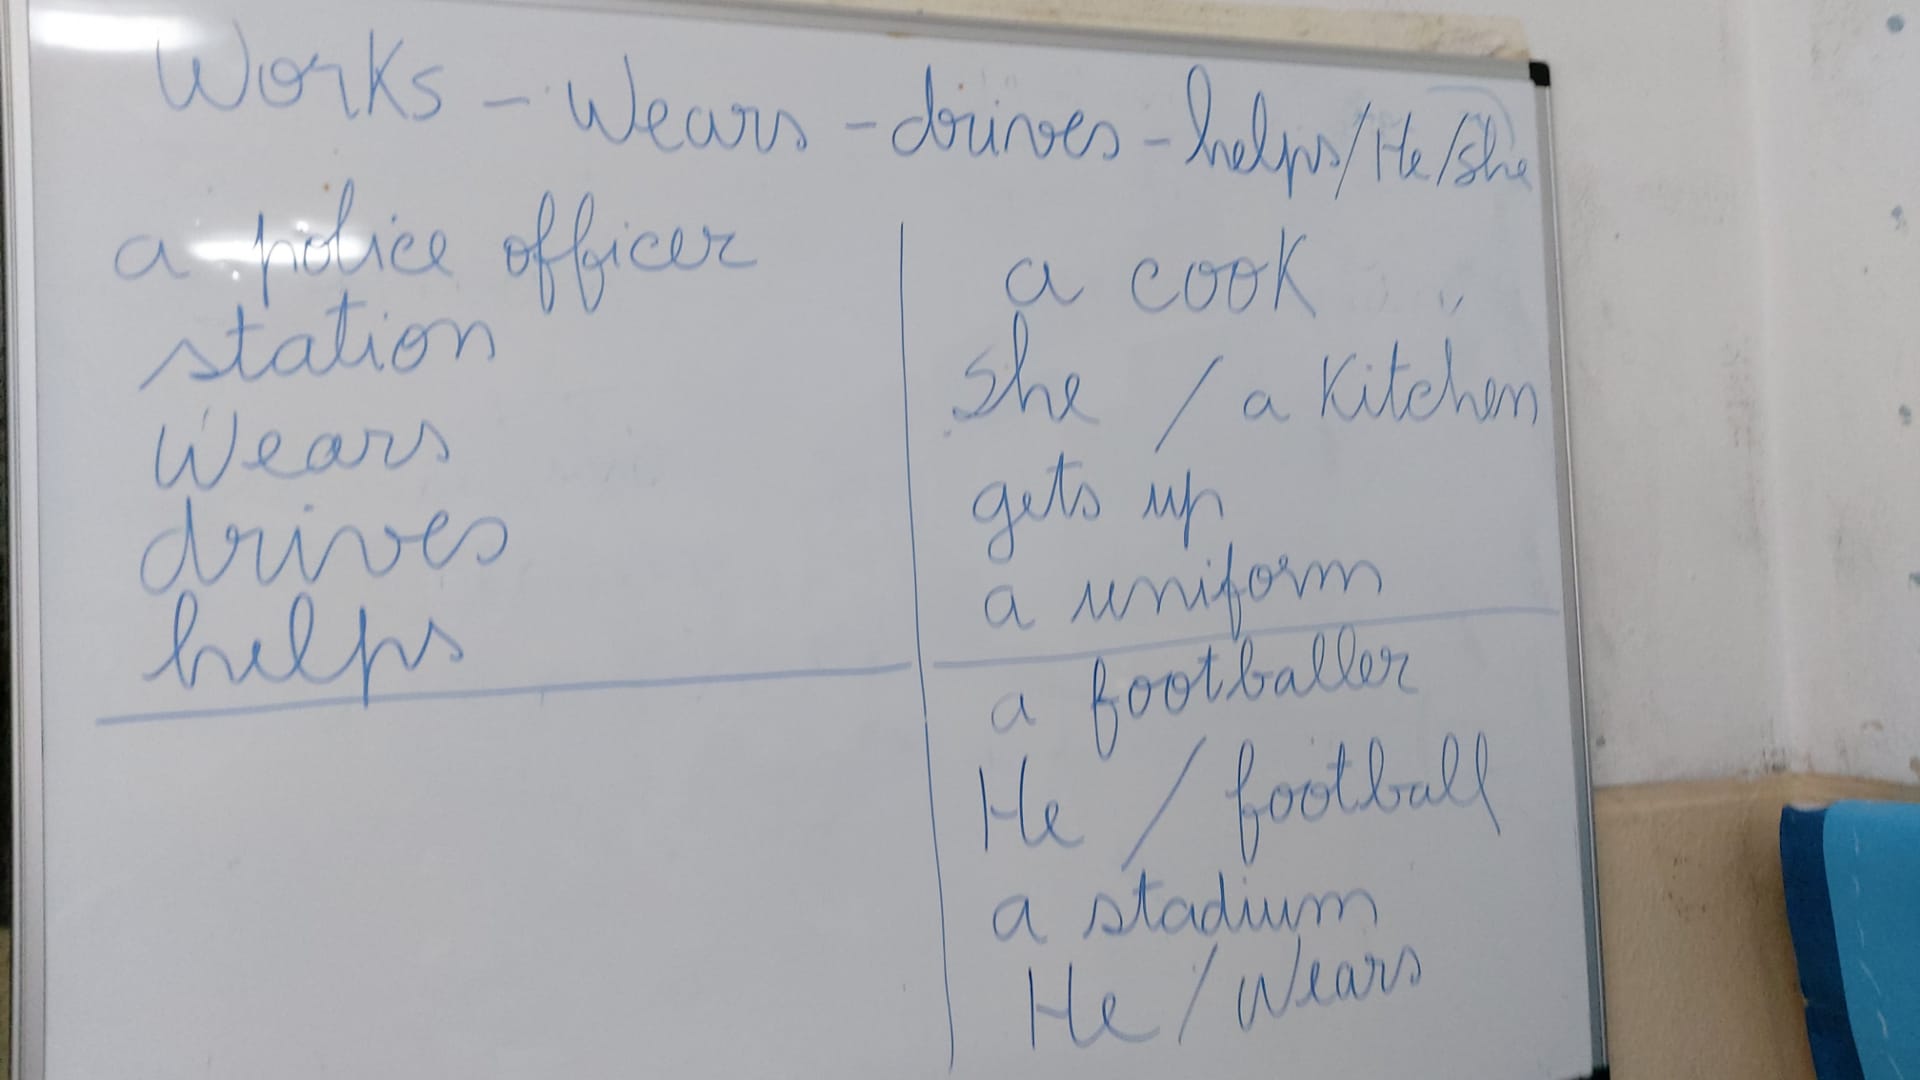 Works - Wears - drives - helps/He/she
a police officer
station
Wears
drives
helps
a cook
She / a Kitchen
gets up
a uniform
a footballer
He / football
a stadium
He / Wears